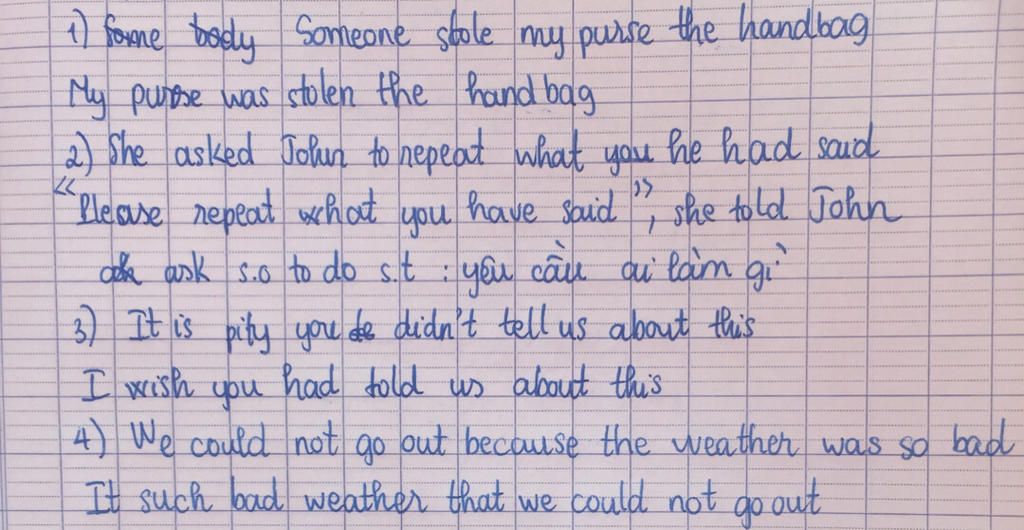 1) Some body Someone stole my purse the handbag
My purse was stolen the handbag
2) She asked John to repeat what you he had said
"Please repeat what you have said", she told John
ask s.o to do s.t : yêu cầu ai làm gì
3) It is pity you didn't tell us about this
I wish you had told us about this
4) We could not go out because the weather was so bad
It such bad weather that we could not go out